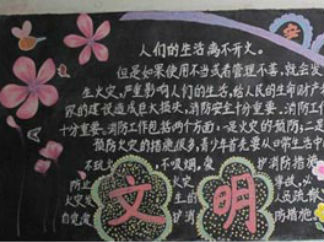 安
人们的生活离不开火。
但是如果使用不当或者管理不善,就会发
生火灾,严重影响人们的生活,给人民的生命财产
家的建设造成巨大损失,消防安全十分重要。消防工作
十分重要。消防工作包括两个方面:一是火灾的预防;二是
预防火灾的措施很多,青少年首先要从日常生活中
不玩火 不吸烟,爱 护消防措施
防止 火灾 事故,必
火灾发 生的 人员疏散
自觉度 护消 防措施。
文明